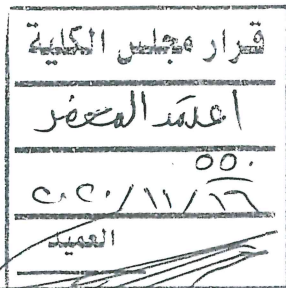 قرار مجلس الكلية
اعتمد المحضر
٥٥٠
٢٠٢٠/١١/١٦
العميد